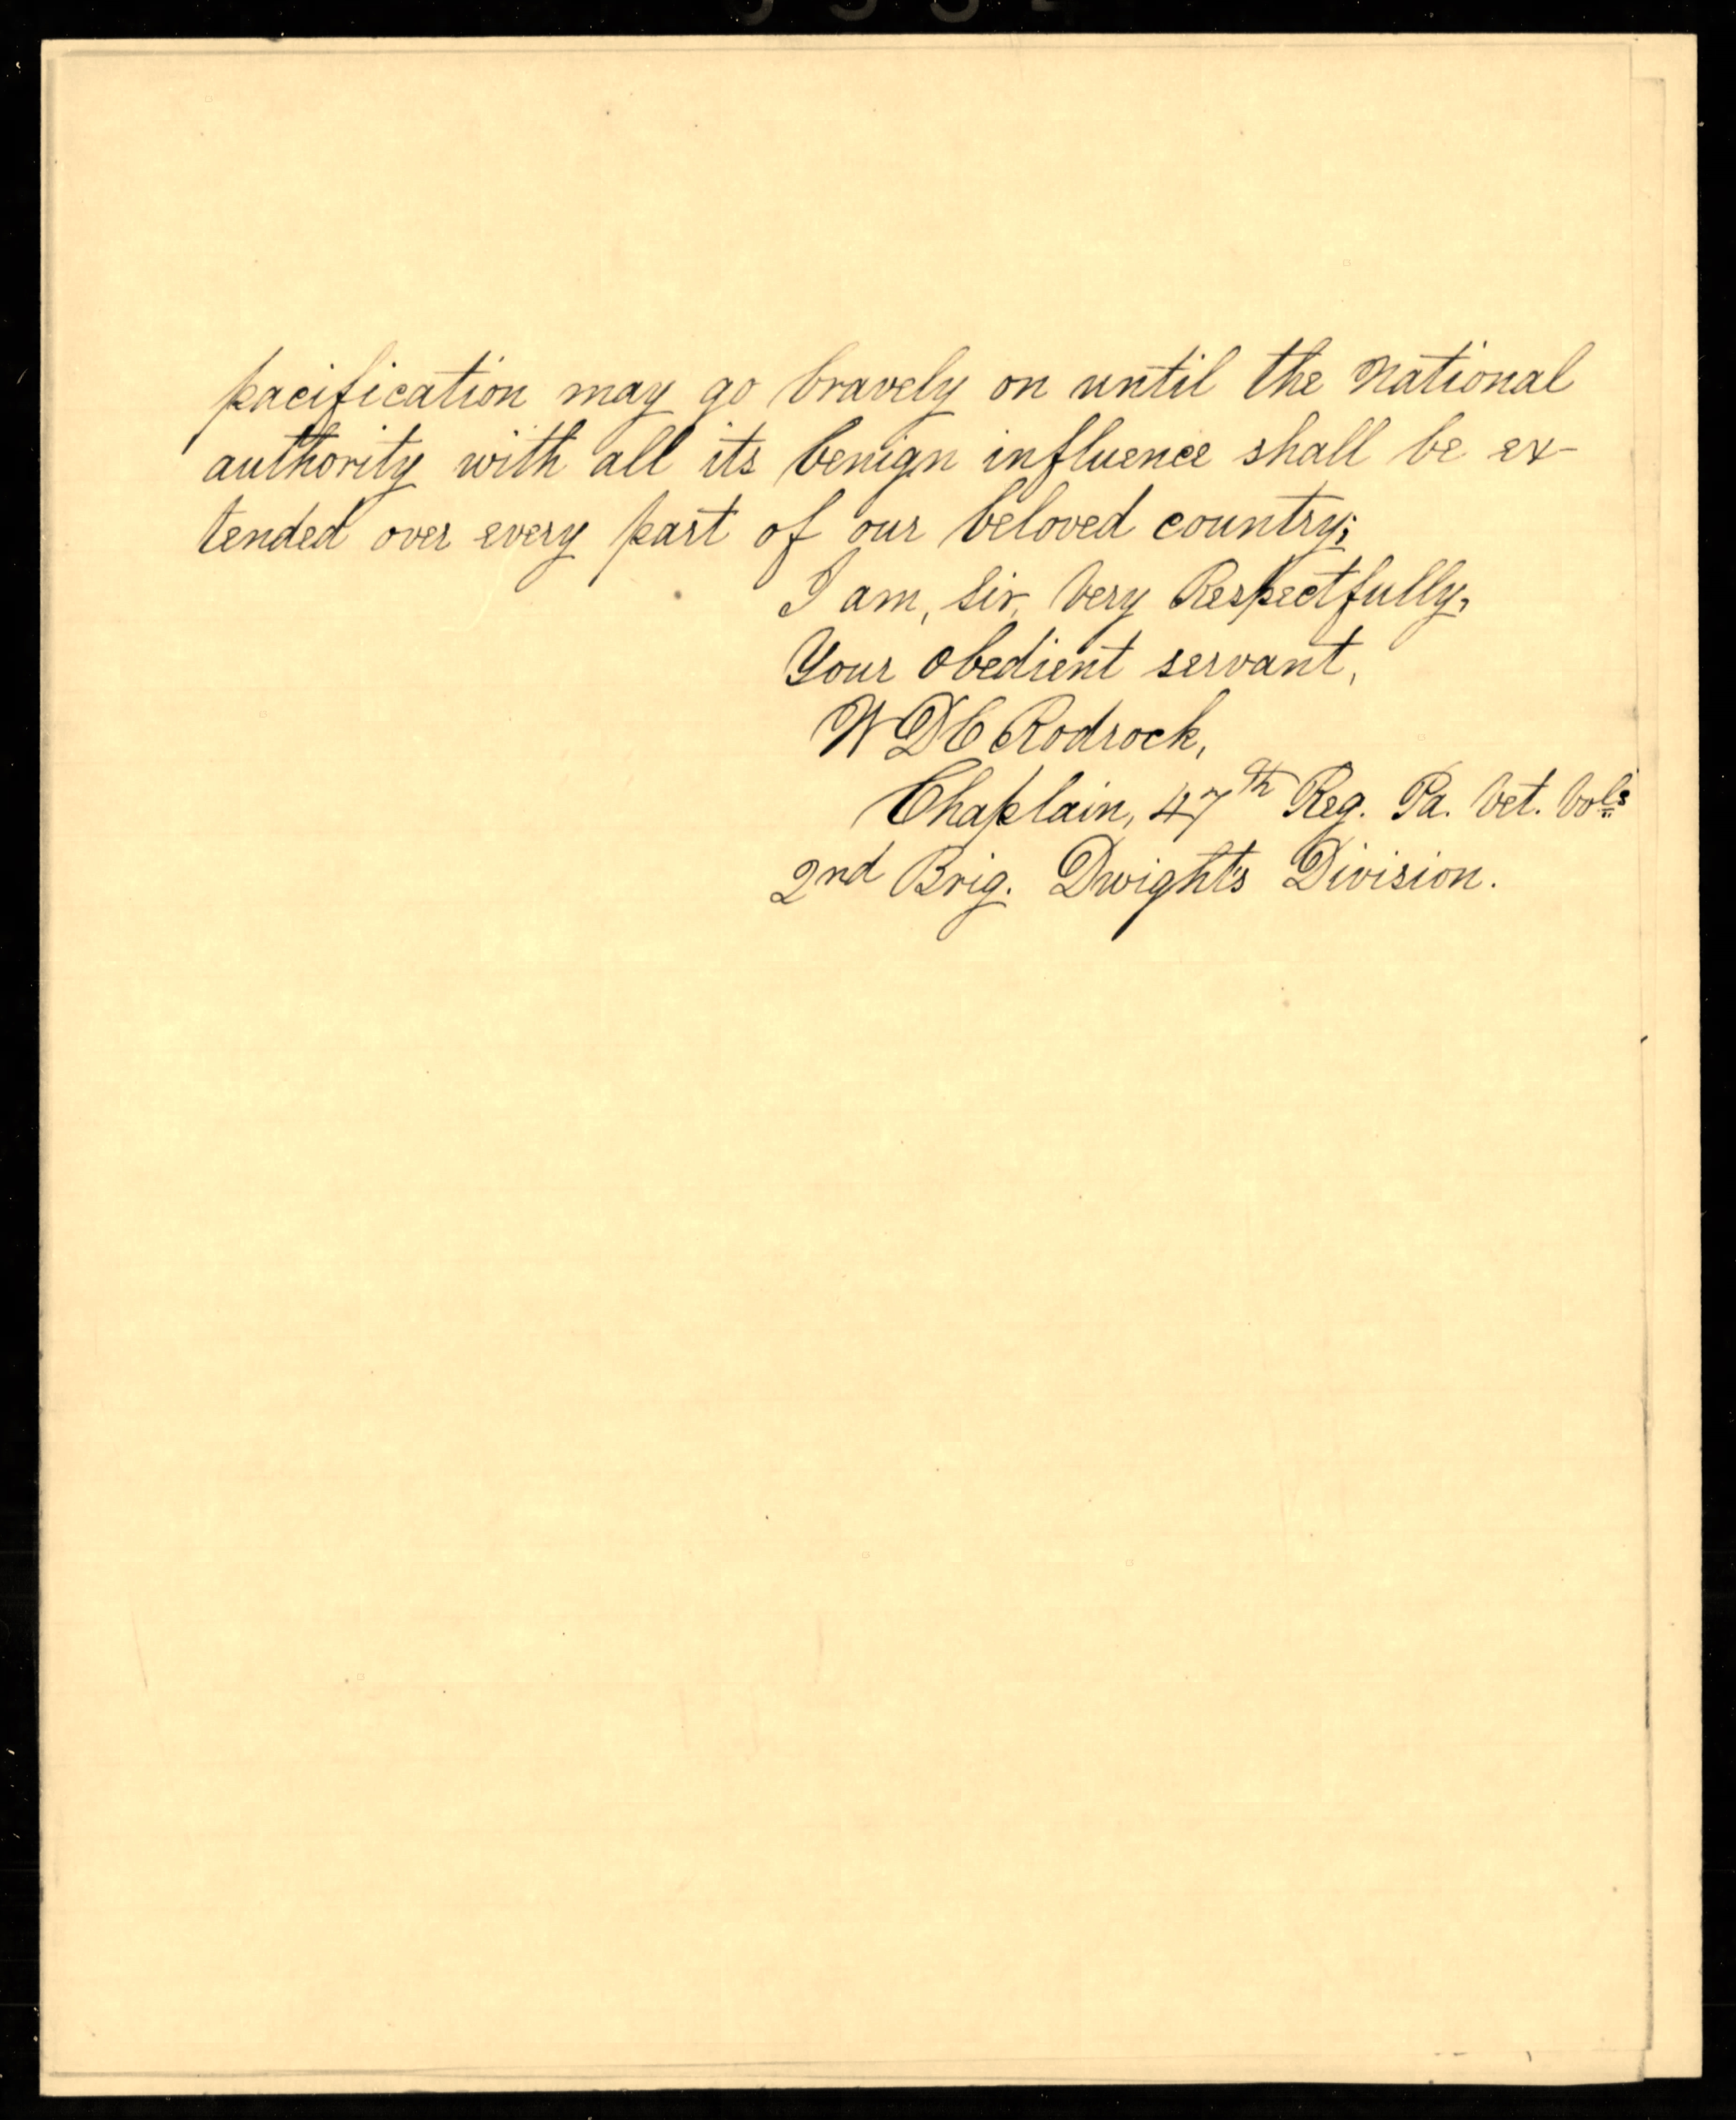 pacification may go bravely on until the National
authority with all its benign influence shall be ex-
tended over every part of our beloved country;
I am, Sir, Very Respectfully,
Your obedient servant,
W D C Rodrock,
Chaplain, 47th Reg. Pa. Vet. Vols
2nd Brig. Dwight's Division.